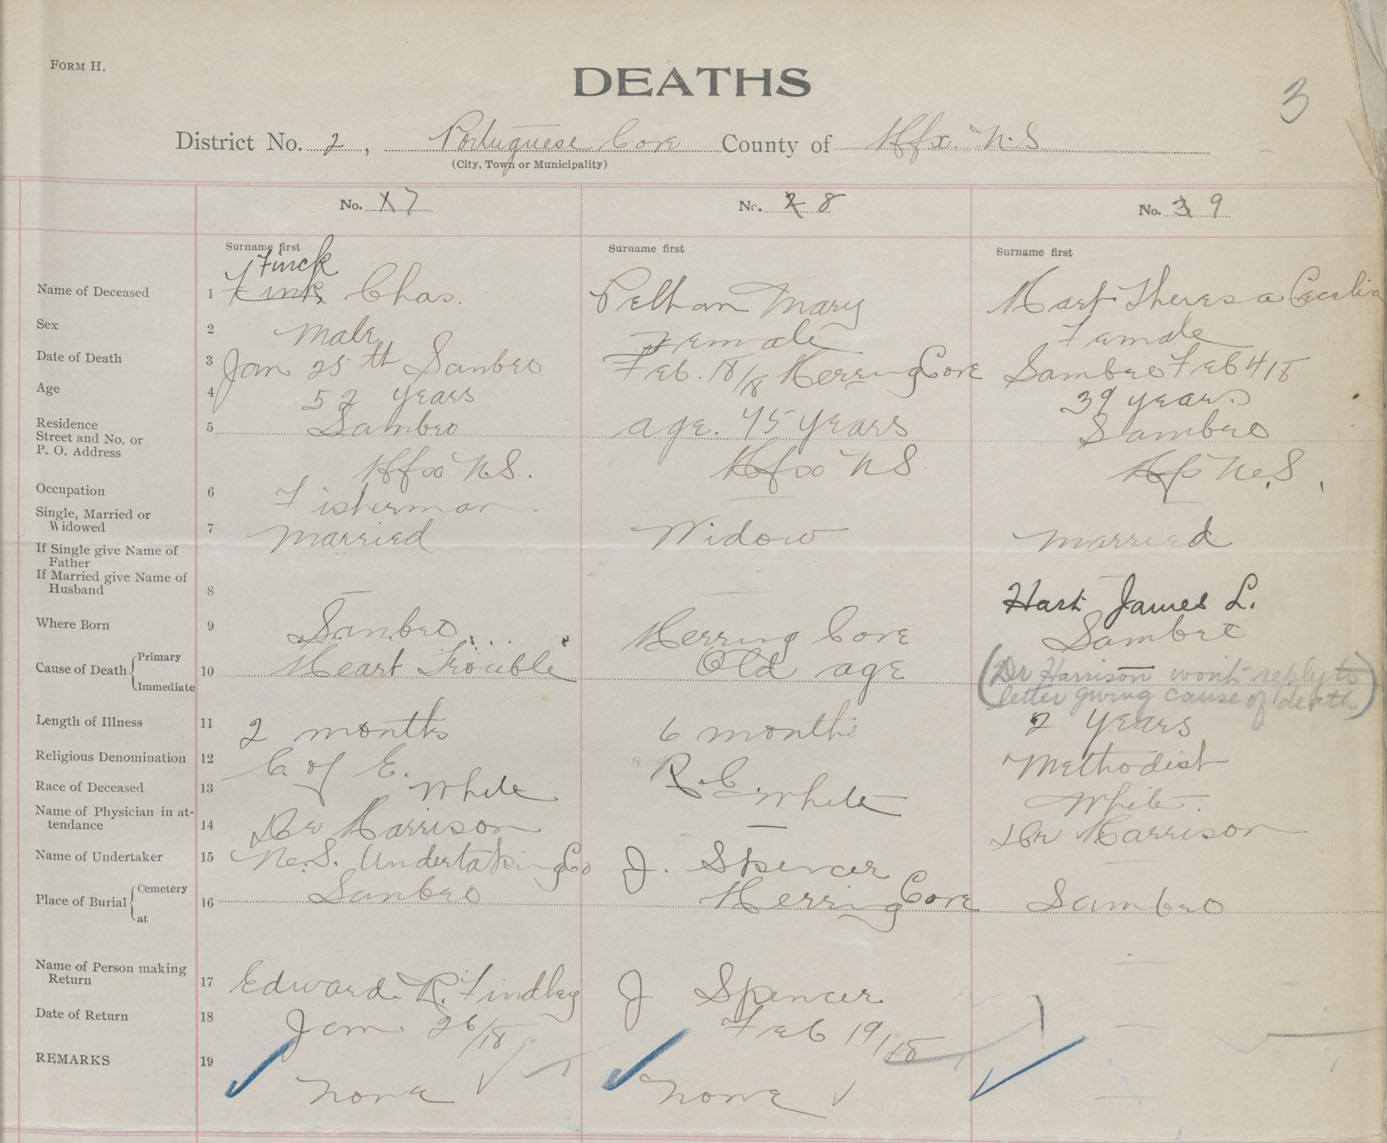 FORM H.
DEATHS
3
District No. 2, Portuguese Cove County of Hfx. N.S
(City, Town or Municipality)
No. 1 7 No. 2 8 No. 3 9
Surname first Surname first Surname first
Finck
Name of Deceased 1 Fink Chas. Pelham Mary Hart Theresa Cecelia
Sex 2 Male Female Female
Date of Death 3 Jan 25th Sambro Feb. 18/18 Herring Cove Sambro Feb 4 18
Age 4 52 years age. 75 years 39 years
Residence 5 Sambro Sambro
Street and No. or
P. O. Address Hfx N.S. Hfx N S Hfx N.S.
Occupation 6 Fisherman
Single, Married or
Widowed 7 Married Widow Married
If Single give Name of
Father
If Married give Name of
Husband 8 Hart James L.
Where Born 9 Sambro Herring Cove Sambro
Cause of Death Primary 10 Heart Trouble Old age (Dr Harrison won't reply to
Immediate letter giving cause of death)
Length of Illness 11 2 months 6 months 2 years
Religious Denomination 12 C. of E. R.C. Methodist
Race of Deceased 13 White White White.
Name of Physician in at-
tendance 14 Dr Harrison Dr Harrison
Name of Undertaker 15 N.S. Undertaking Co J. Spencer
Place of Burial Cemetery 16 Sambro Herring Cove Sambro
at
Name of Person making
Return 17 Edward R. Findley J Spencer
Date of Return 18 Jan 26/18 Feb 19/18
REMARKS 19 none none